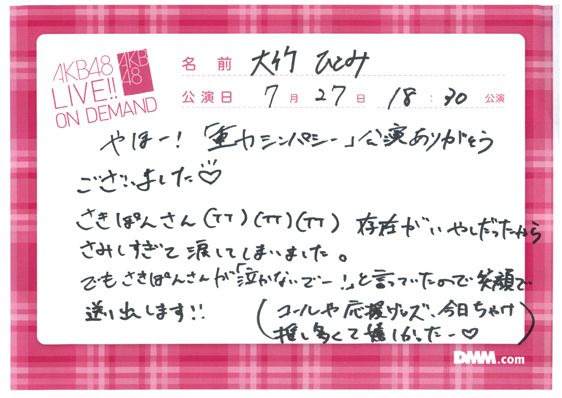 AKB48
LIVE!!
ON DEMAND
AKB
48
名前 大竹 ひとみ
公演日 7月27日 18:30公演
やほー！「重力シンパシー」公演ありがとう
ございました♡
さきぽんさん(TT)(TT)(TT) 存在がいやしだったから
さみしすぎて涙してしまいました。
でもさきぽんさんが「泣かないでー！」と言っていたので笑顔で
送り出します!!
(コールや応援グッズ、今日ちゃけ
推し多くて嬉しかったー♡)
DMM.com